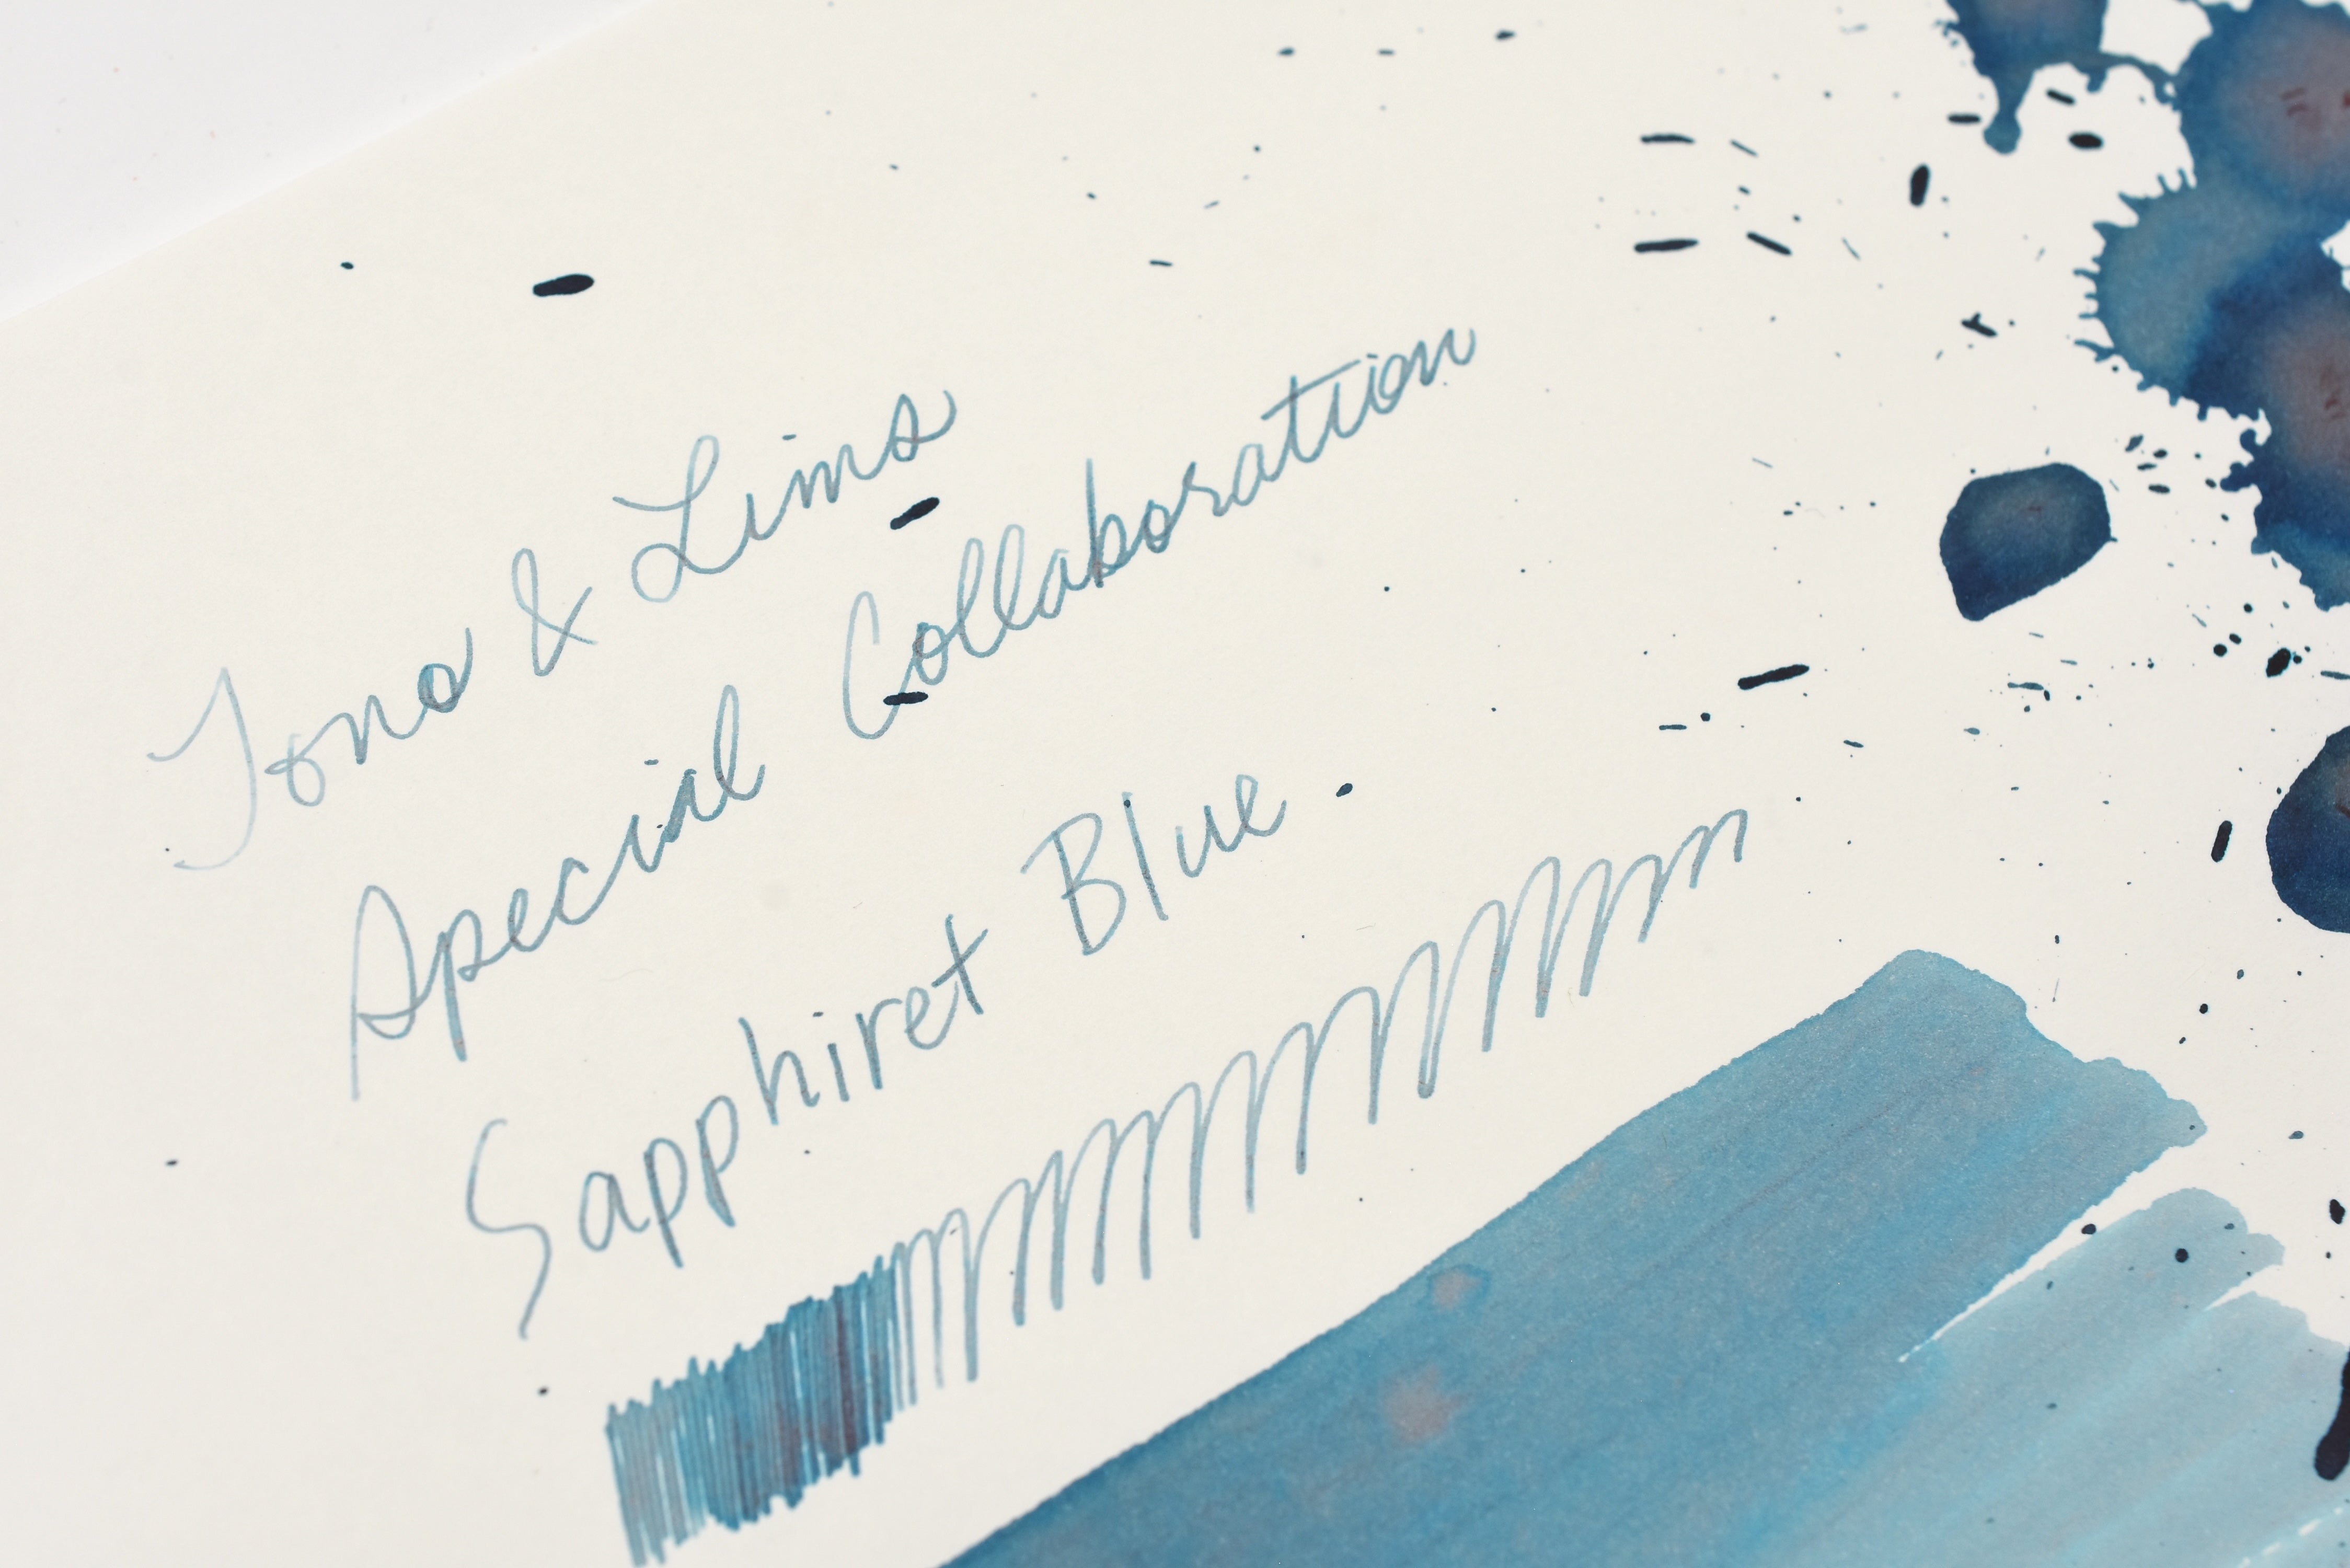 Tono & Lims
Special Collaboration
Sapphiret Blue.